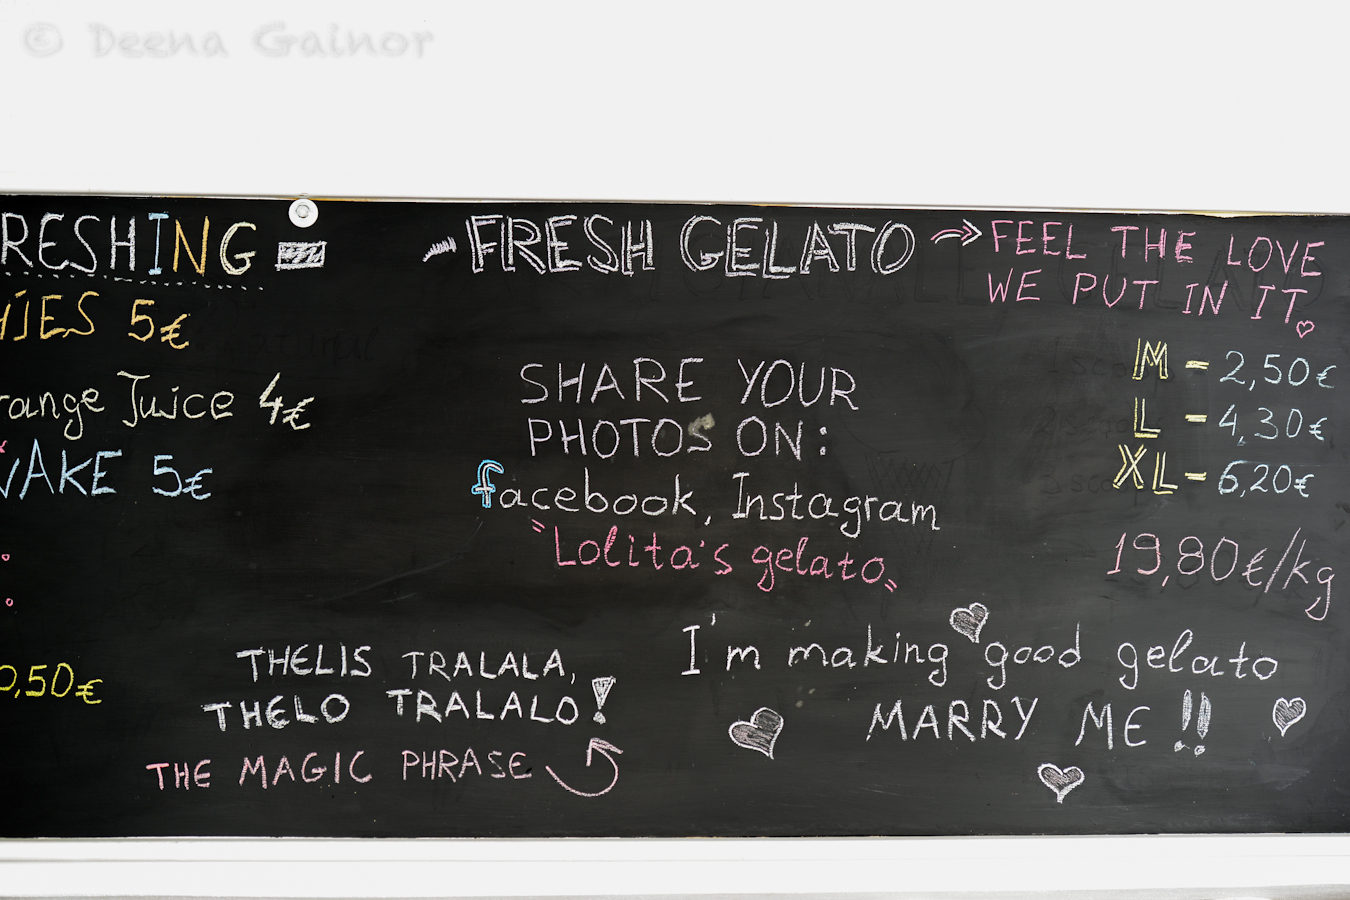 © Deena Gainor
RESHING
HIES 5€
range Juice 4€
WAKE 5€
0,50€
FRESH GELATO
FEEL THE LOVE
WE PUT IN IT
SHARE YOUR
PHOTOS ON:
facebook, Instagram
"Lolita's gelato„
M = 2,50€
L = 4,30€
XL = 6,20€
19,80€/kg
THELIS TRALALA,
THELO TRALALO!
THE MAGIC PHRASE
I'm making good gelato
MARRY ME!!